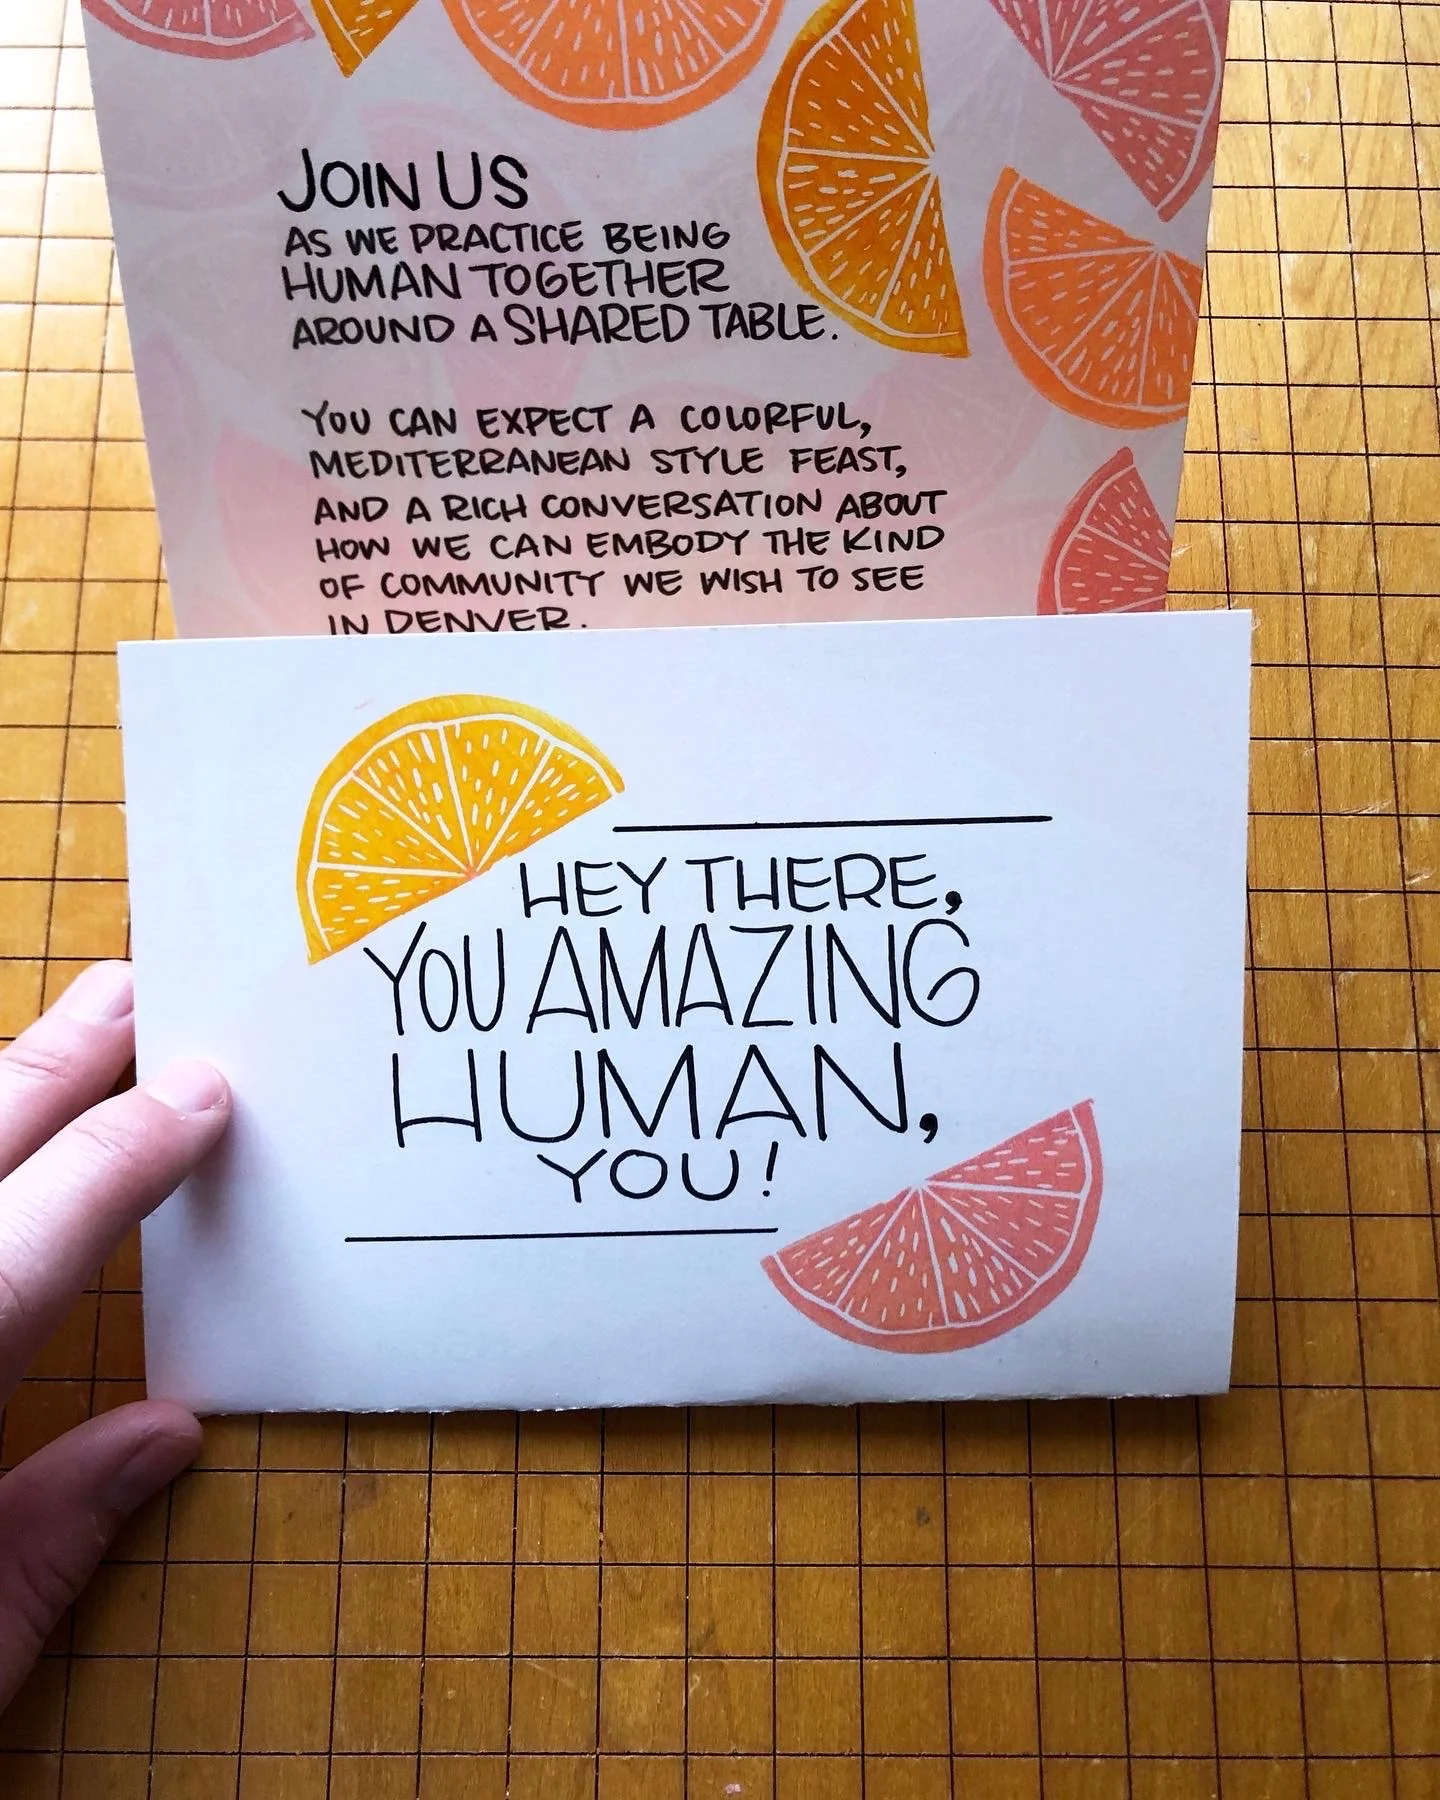 JOIN US
AS WE PRACTICE BEING
HUMAN TOGETHER
AROUND A SHARED TABLE.
YOU CAN EXPECT A COLORFUL,
MEDITERRANEAN STYLE FEAST,
AND A RICH CONVERSATION ABOUT
HOW WE CAN EMBODY THE KIND
OF COMMUNITY WE WISH TO SEE
IN DENVER.
HEY THERE,
YOU AMAZING
HUMAN,
YOU!